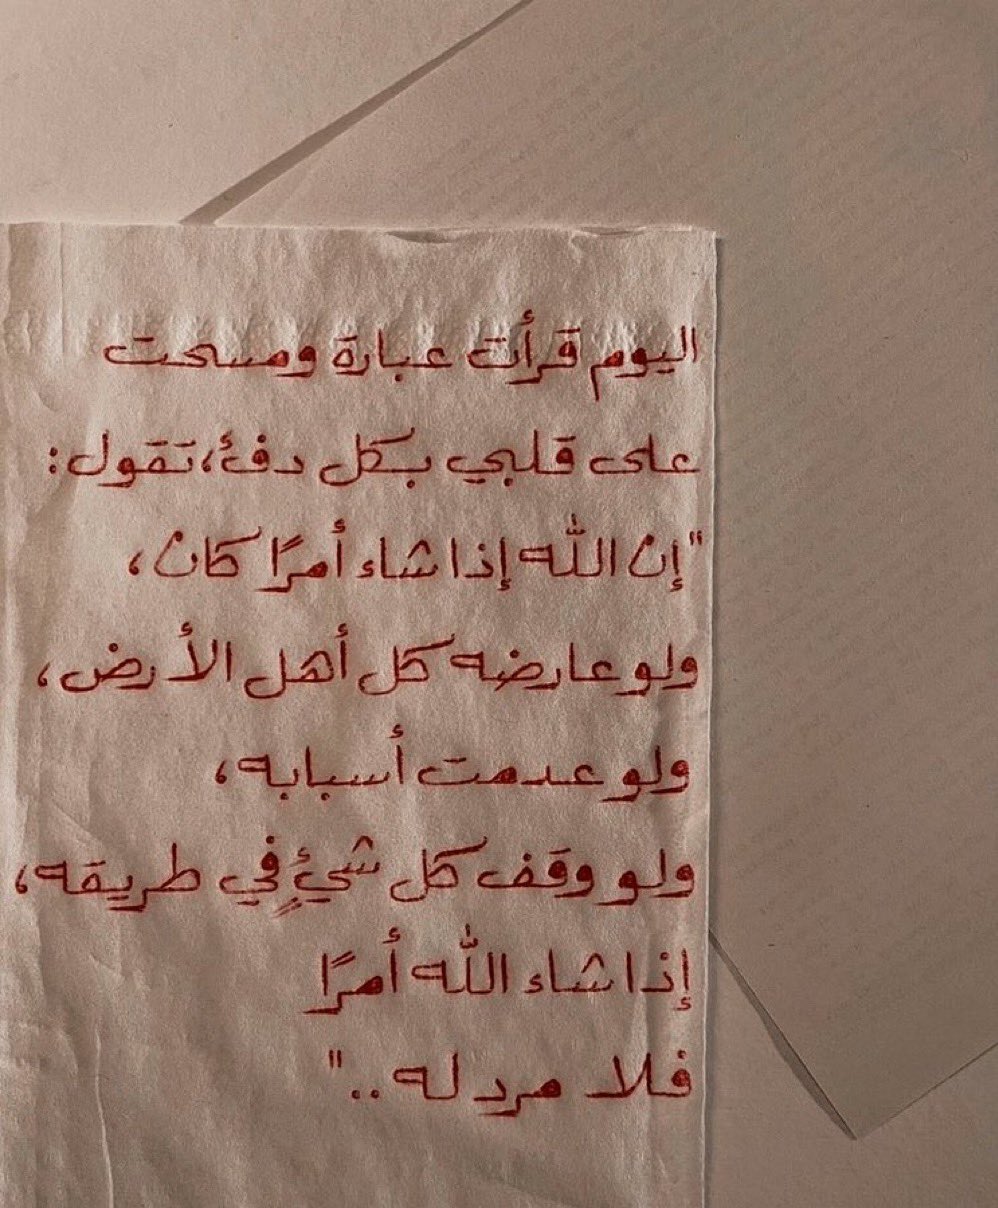 اليوم قرأت عبارة ومسحت
على قلبي بكل دفئ، تقول:
"إن الله إذا شاء أمرًا كان،
ولو عارضه كل أهل الأرض،
ولو عدمت أسبابه،
ولو وقف كل شيءٍ في طريقه،
إذا شاء الله أمرًا
فلا مرد له.."